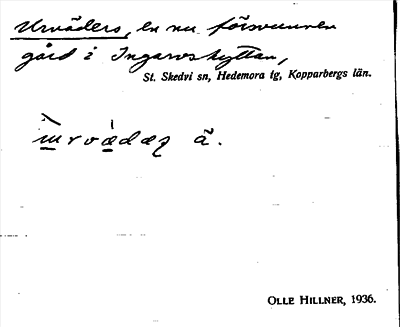 Urväders, en nu försvunnen
gård i Ingarvshyttan,
St. Skedvi sn, Hedemora tg, Kopparbergs län.
ä.
OLLE HILLNER, 1936.